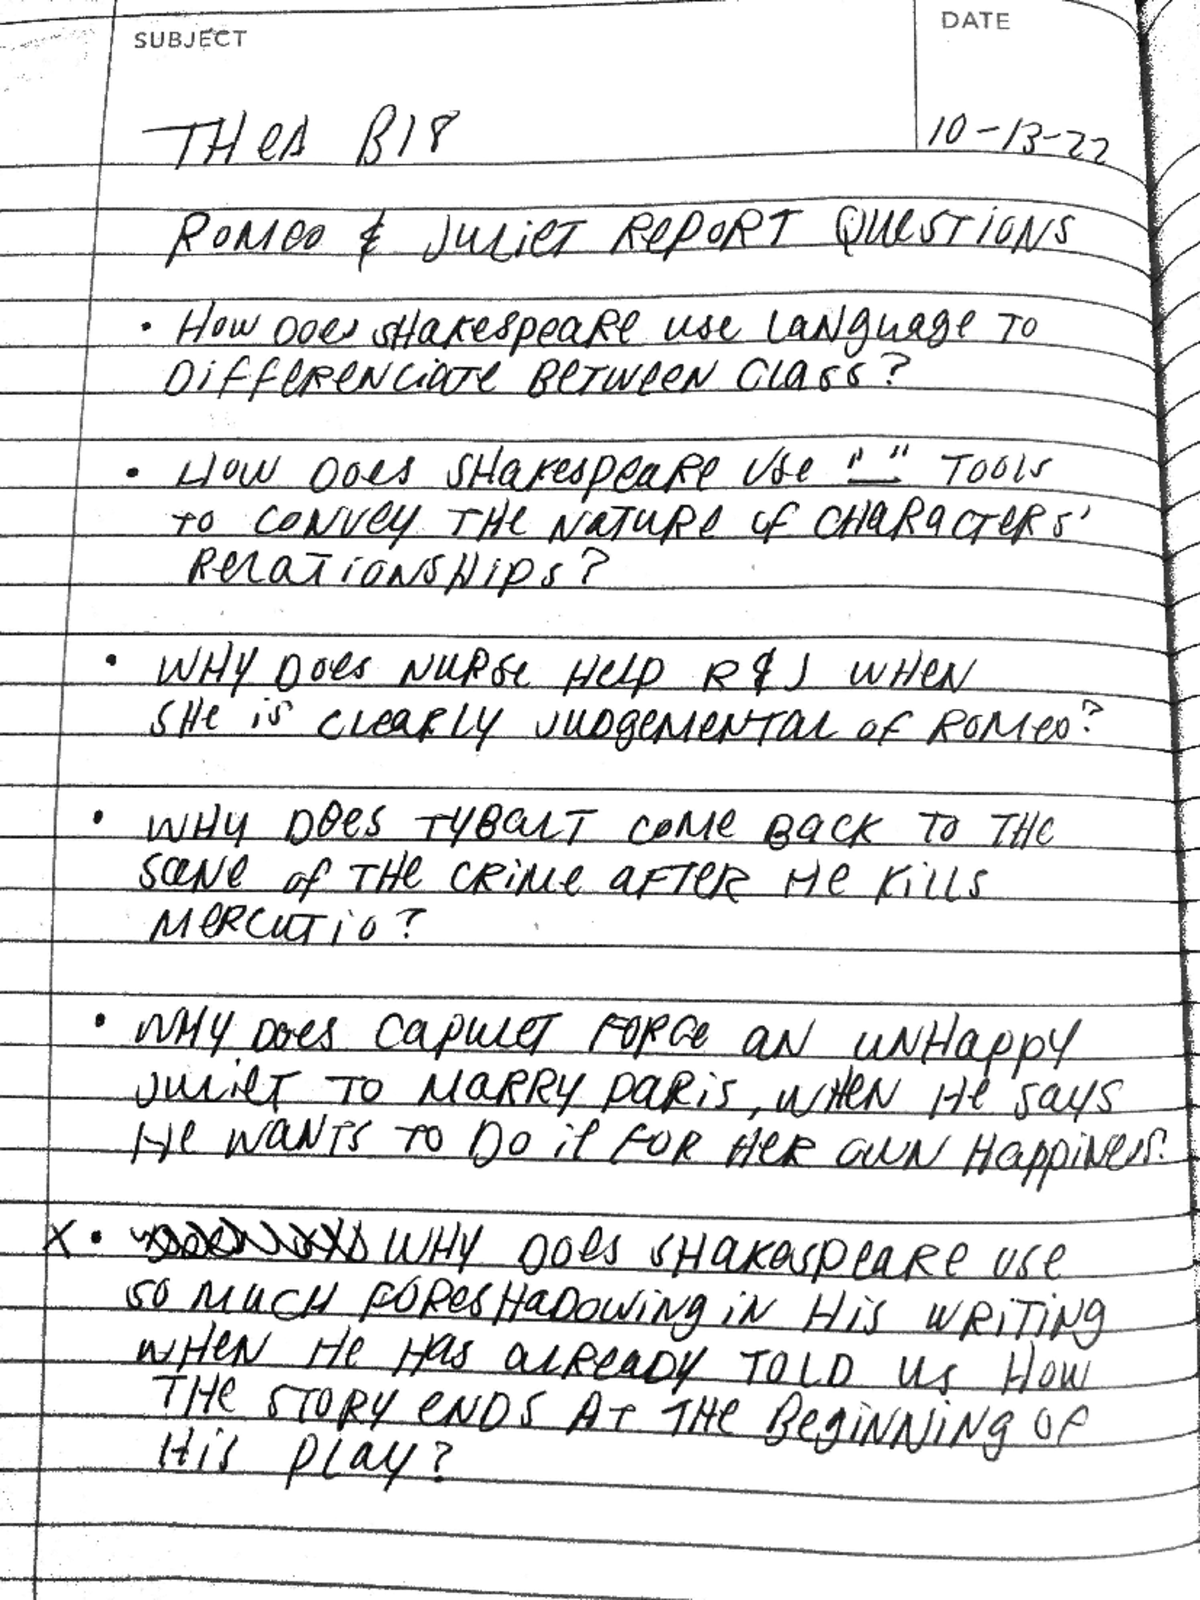 SUBJECT
DATE
THEA B18
10-13-22
ROMEO & JULIET REPORT QUESTIONS
• HOW DOES SHAKESPEARE USE LANGUAGE TO
DIFFERENCIATE BETWEEN CLASS?
• HOW DOES SHAKESPEARE USE "_" TOOLS
TO CONVEY THE NATURE OF CHARACTERS'
RELATIONSHIPS?
• WHY DOES NURSE HELP R&J WHEN
SHE IS CLEARLY JUDGEMENTAL OF ROMEO?
• WHY DOES TYBALT COME BACK TO THE
SCENE OF THE CRIME AFTER HE KILLS
MERCUTIO?
• WHY DOES CAPULET FORCE AN UNHAPPY
JULIET TO MARRY PARIS, WHEN HE SAYS
HE WANTS TO DO IT FOR HER OWN HAPPINESS?
X • WHY DOES SHAKESPEARE USE
SO MUCH FORESHADOWING IN HIS WRITING
WHEN HE HAS ALREADY TOLD US HOW
THE STORY ENDS AT THE BEGINNING OF
HIS PLAY?